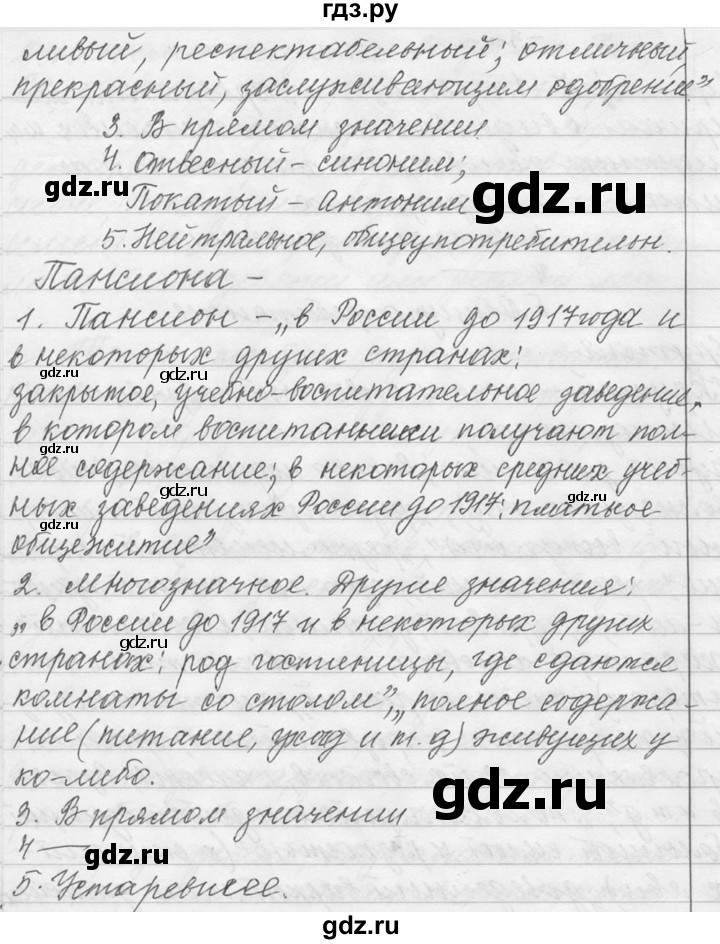 гдз.ру
ливый, респектабельный; отличный,
прекрасный, заслуживающим одобрение"
3. В прямом значении
4. Отвесный - синоним;
gdz.ru
gdz.ru
Покатый - антоним
5. Нейтральное, общеупотребительн.
Пансиона -
1. Пансион - „в России до 1917 года и
в некоторых других странах:
gdz.ru
закрытое, учебно-воспитательное заведение,
в котором воспитанники получают пол-
ное содержание; в некоторых средних учеб-
ных заведениях России до 1917: платное
gdz.ru
gdz.ru
общежитие"
2. Многозначное. Другие значения:
„в России до 1917 и в некоторых других
gdz.ru
странах: род гостиницы, где сдаются
комнаты со столом", „полное содержа-
ние (питание, уход и т.д) живущих у
ко-либо.
gdz.ru
3. В прямом значении
4 —
gdz.ru
5. Устаревшее.
gdz.ru